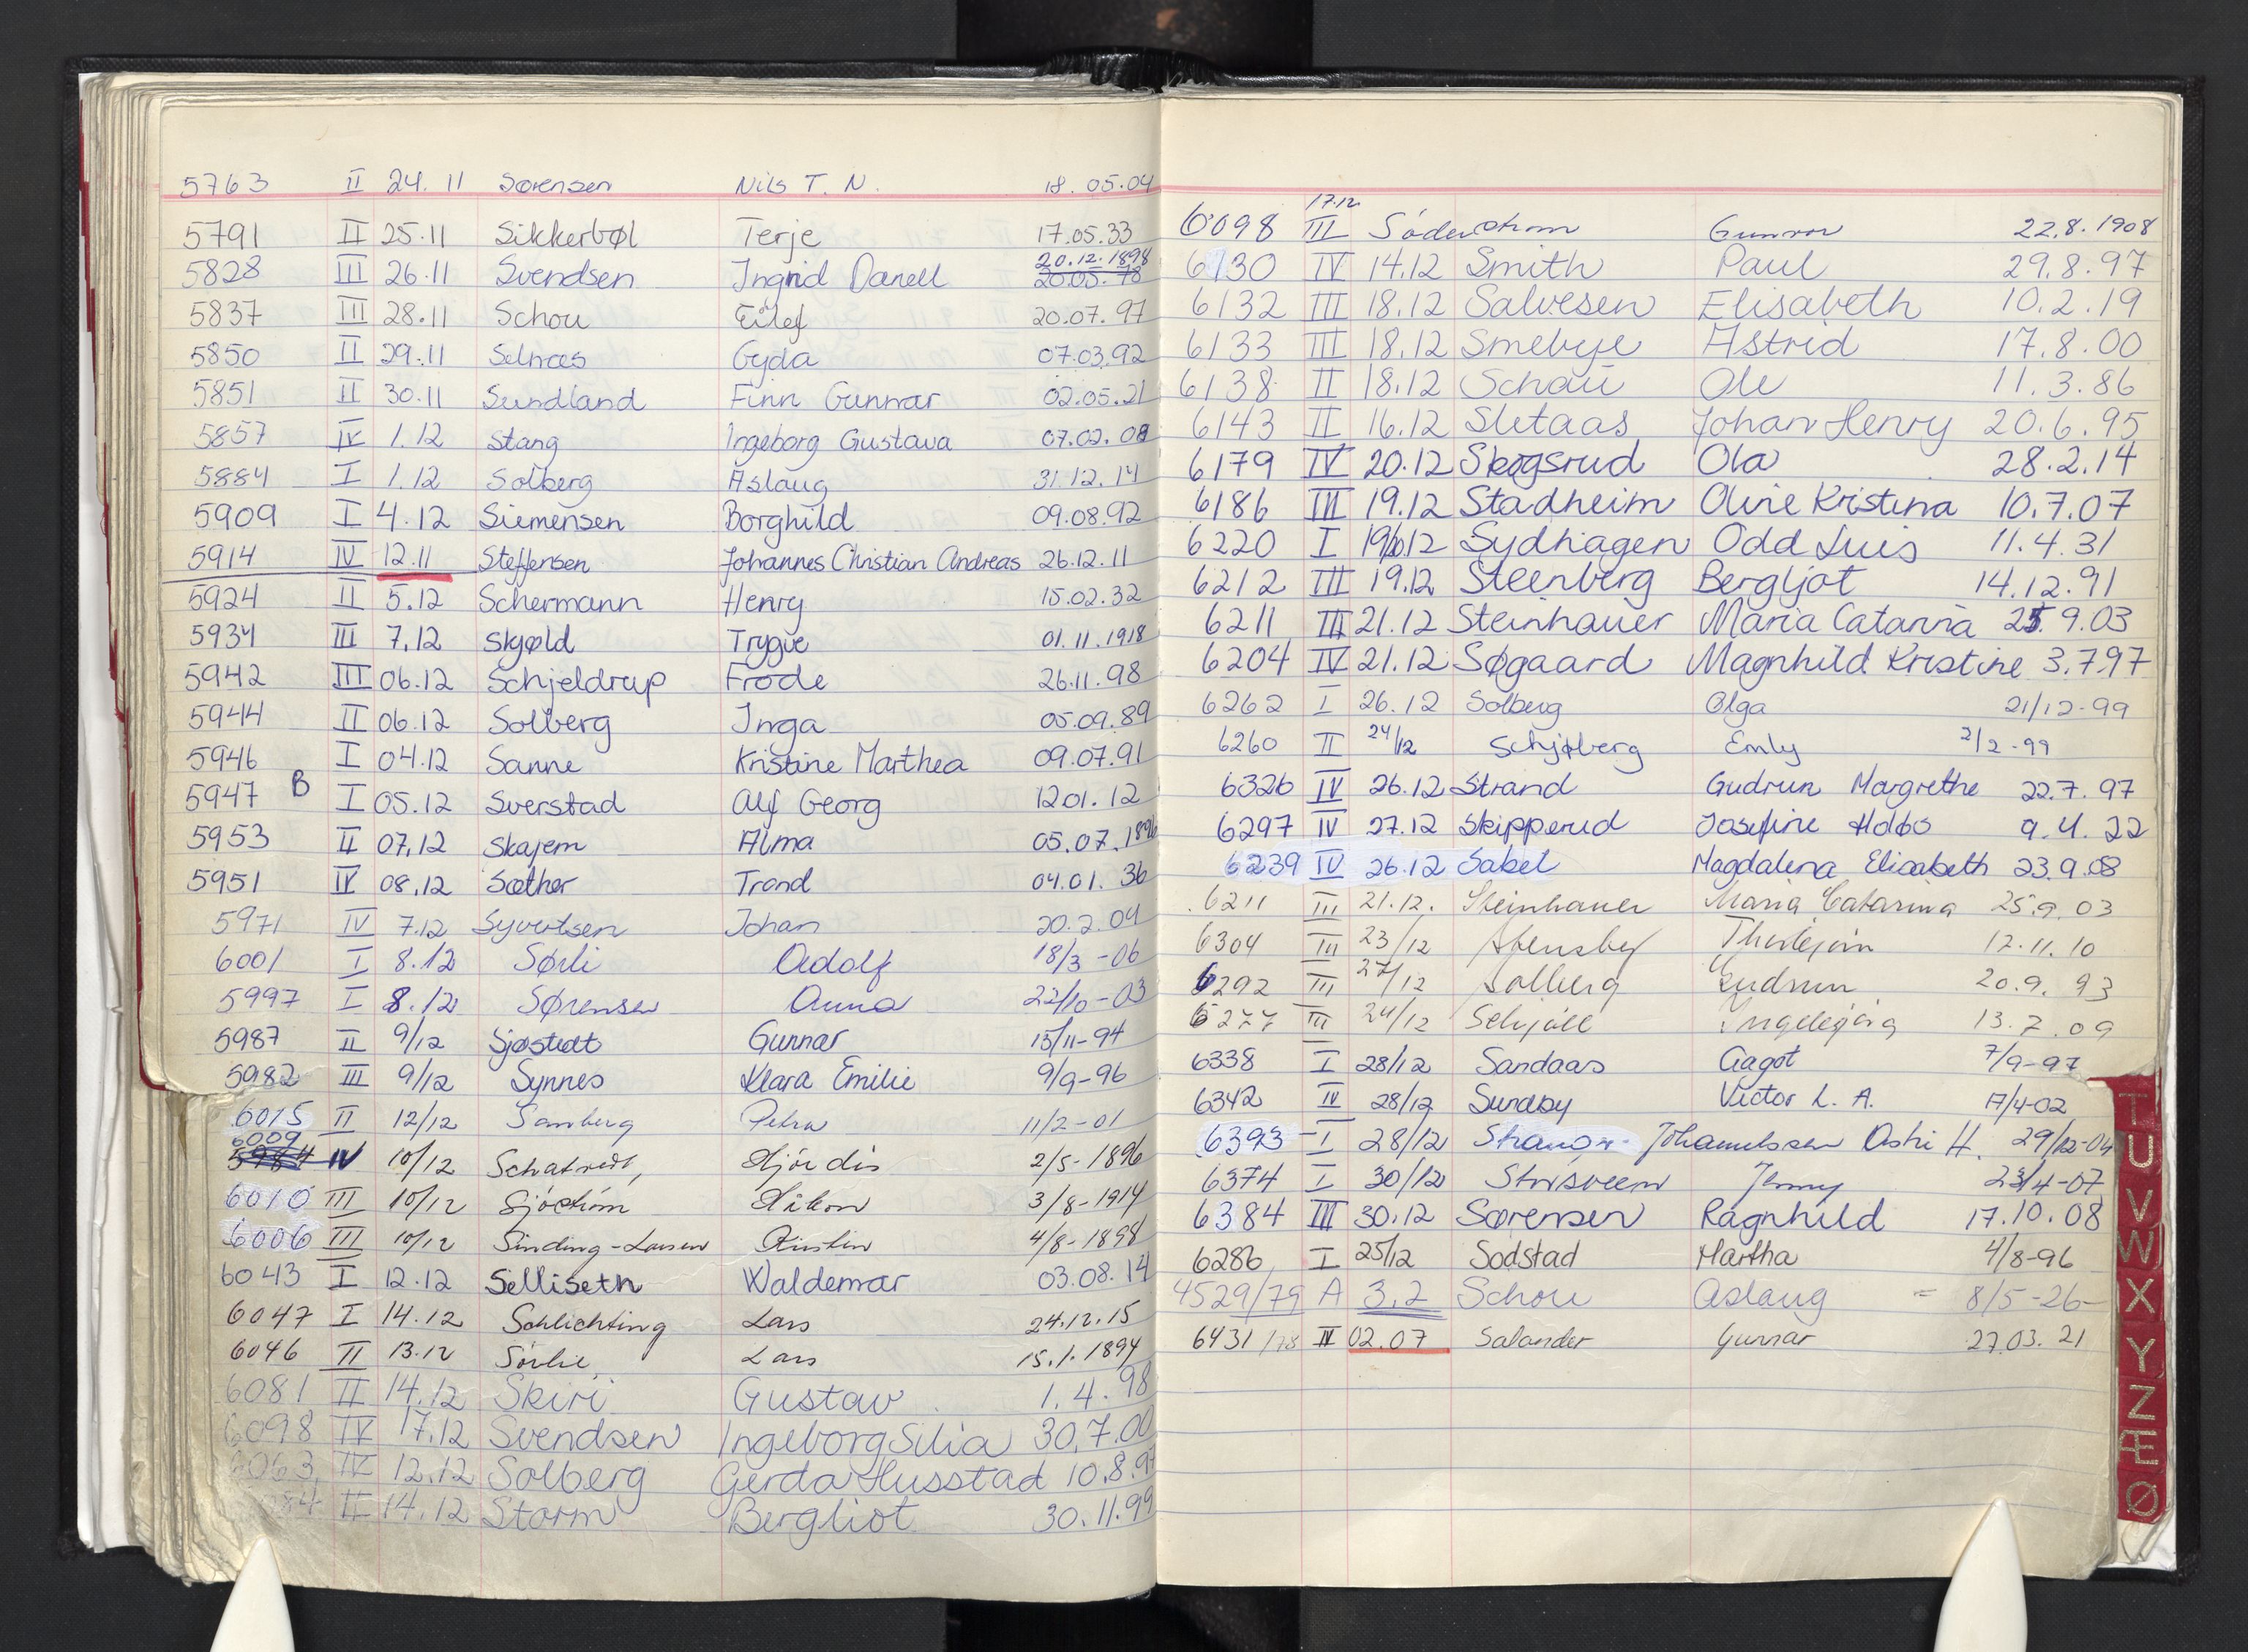 5763 II 24.11 Sørensen Nils T. N. 18.05.04
5791 II 25.11 Sikkerbøl Terje 17.05.33
20.12.1898
5828 III 26.11 Svendsen Ingrid Danell 20.05.78
5837 III 28.11 Schou Eilef 20.07.97
5850 II 29.11 Selnæs Gyda 07.03.92
5851 II 30.11 Sundland Finn Gunnar 02.05.21
5857 IV 1.12 Stang Ingeborg Gustava 07.02.08
5884 I 1.12 Solberg Aslaug 31.12.14
5909 I 4.12 Siemensen Borghild 09.08.92
5914 IV 12.11 Steffensen Johannes Christian Andreas 26.12.11
5924 II 5.12 Schermann Henry 15.02.32
5934 III 7.12 Skjøld Trygve 01.11.1918
5942 III 06.12 Schjeldrup Frode 26.11.98
5944 II 06.12 Solberg Inga 05.09.89
5946 I 04.12 Sanne Kristine Marthea 09.07.91
5947 B I 05.12 Sverstad Alf Georg 1201.12
5953 II 07.12 Skajem Alma 05.07.1896
5951 IV 08.12 Sæther Trond 04.01.36
5971 IV 7.12 Syvertsen Johan 20.2.04
6001 I 8.12 Sørli Adolf 18/3-06
5997 I 8.12 Sørensen Anna 22/10-03
5987 II 9/12 Sjøstedt Gunnar 15/11-94
5982 III 9/12 Synnes Klara Emilie 9/9-96
6015 II 12/12 Samberg Petra 11/2-01
6009
5984 IV 10/12 Hjördis 2/5-1896
6010 III 10/12 Sjöström Håkon 3/8-1914
6006 III 10/12 Sinding-Larsen Kirstin 4/8-1898
6043 I 12.12 Selliseth Waldemar 03.08.14
6047 I 14.12 Schlichting Lars 24.12.15
6046 II 13.12 Sörlie Lars 15.1.1894
6081 II 14.12 Skiri Gustav 1.4.98
6098 IV 17.12 Svendsen Ingeborg Silia 30.7.00
6063 IV 12.12 Solberg Gerda Husstad 10.8.9
84 II 14.12 Storm Bergliot 30.11.99
17.12
6098 III Söderstrom Gunvor 22.8.1908
6130 IV 14.12 Smith Paul 29.8.97
6132 III 18.12 Salvesen Elisabeth 10.2.19
6133 III 18.12 Smebye Astrid 17.8.00
6138 II 18.12 Schau Ole 11.3.86
6143 II 16.12 Sletaas Johan Henry 20.6.95
6179 IV 20.12 Skogsrud Ola 28.2.14
6186 III 19.12 Stadheim Olive Kristina 10.7.07
6220 I 19/20.12 Sydhagen Odd Luis 11.4.31
6212 III 19.12 Steenberg Bergljot 14.12.91
6211 III 21.12 Steinhauer Maria Catarina 25.9.03
6204 IV 21.12 Søgaard Magnhild Kristine 3.7.97
6262 I 26.12 Solberg Olga 21/12-99
6260 II 24/12 Schjøberg Emly 2/2-99
6326 IV 26.12 Strand Gudrun Margrethe 22.7.97
6297 IV 27.12 Skipperud Josefine Holbø 9.4.22
6239 IV 26.12 Sabel Magdalena Elisabeth 23.9.08
6211 III 21.12. Steinhauer Maria Catarina 25.9.03
6304 III 23/12 Stensby Thorbjørn 12.11.10
6292 III 27/12 Solberg Gudrun 20.9.93
6277 III 24/12 Schjöll Ingebjörg 13.7.09
6338 I 28/12 Sandaas Aagot 7/9-97
6342 IV 28/12 Sundby Victor L. A. 17/4-02
6393 I 28/12 Johannessen Astri H. 29/12-04
6374 I 30/12 Jenny 23/4-07
6384 III 30.12 Sørensen Ragnhild 17.10.08
6286 I 25/12 Sodstad Martha 4/8-96
4529/79 A 3.2 Schou Aslaug = 8/5-26-
6431/78 IV 02.07 Salander Gunnar 27.03.21
T
U
V
W
X
Y
Z
Æ
Ø